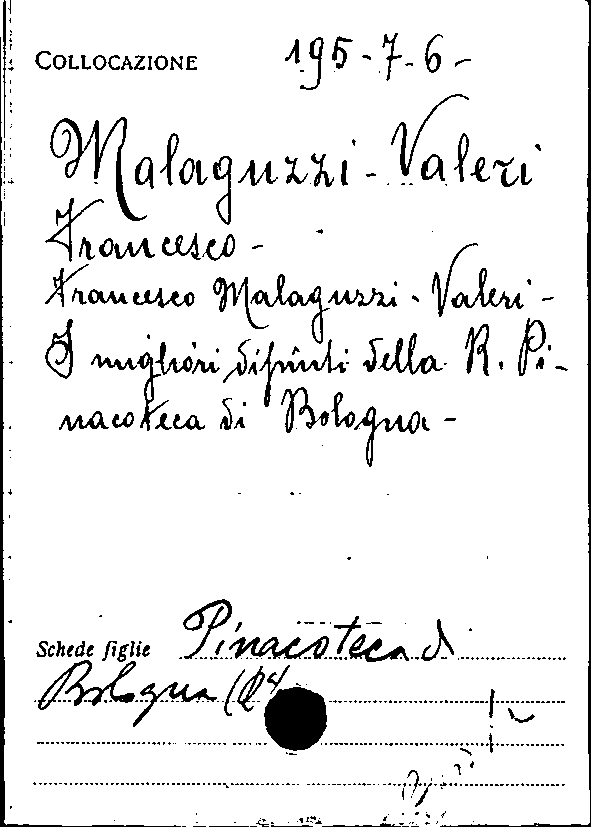 COLLOCAZIONE 195-7-6-
Malaguzzi-Valeri
Francesco-
Francesco Malaguzzi-Valeri-
I migliori dipinti della R. Pi-
nacoteca di Bologna-
Schede figlie Pinacoteca di
Bologna (R